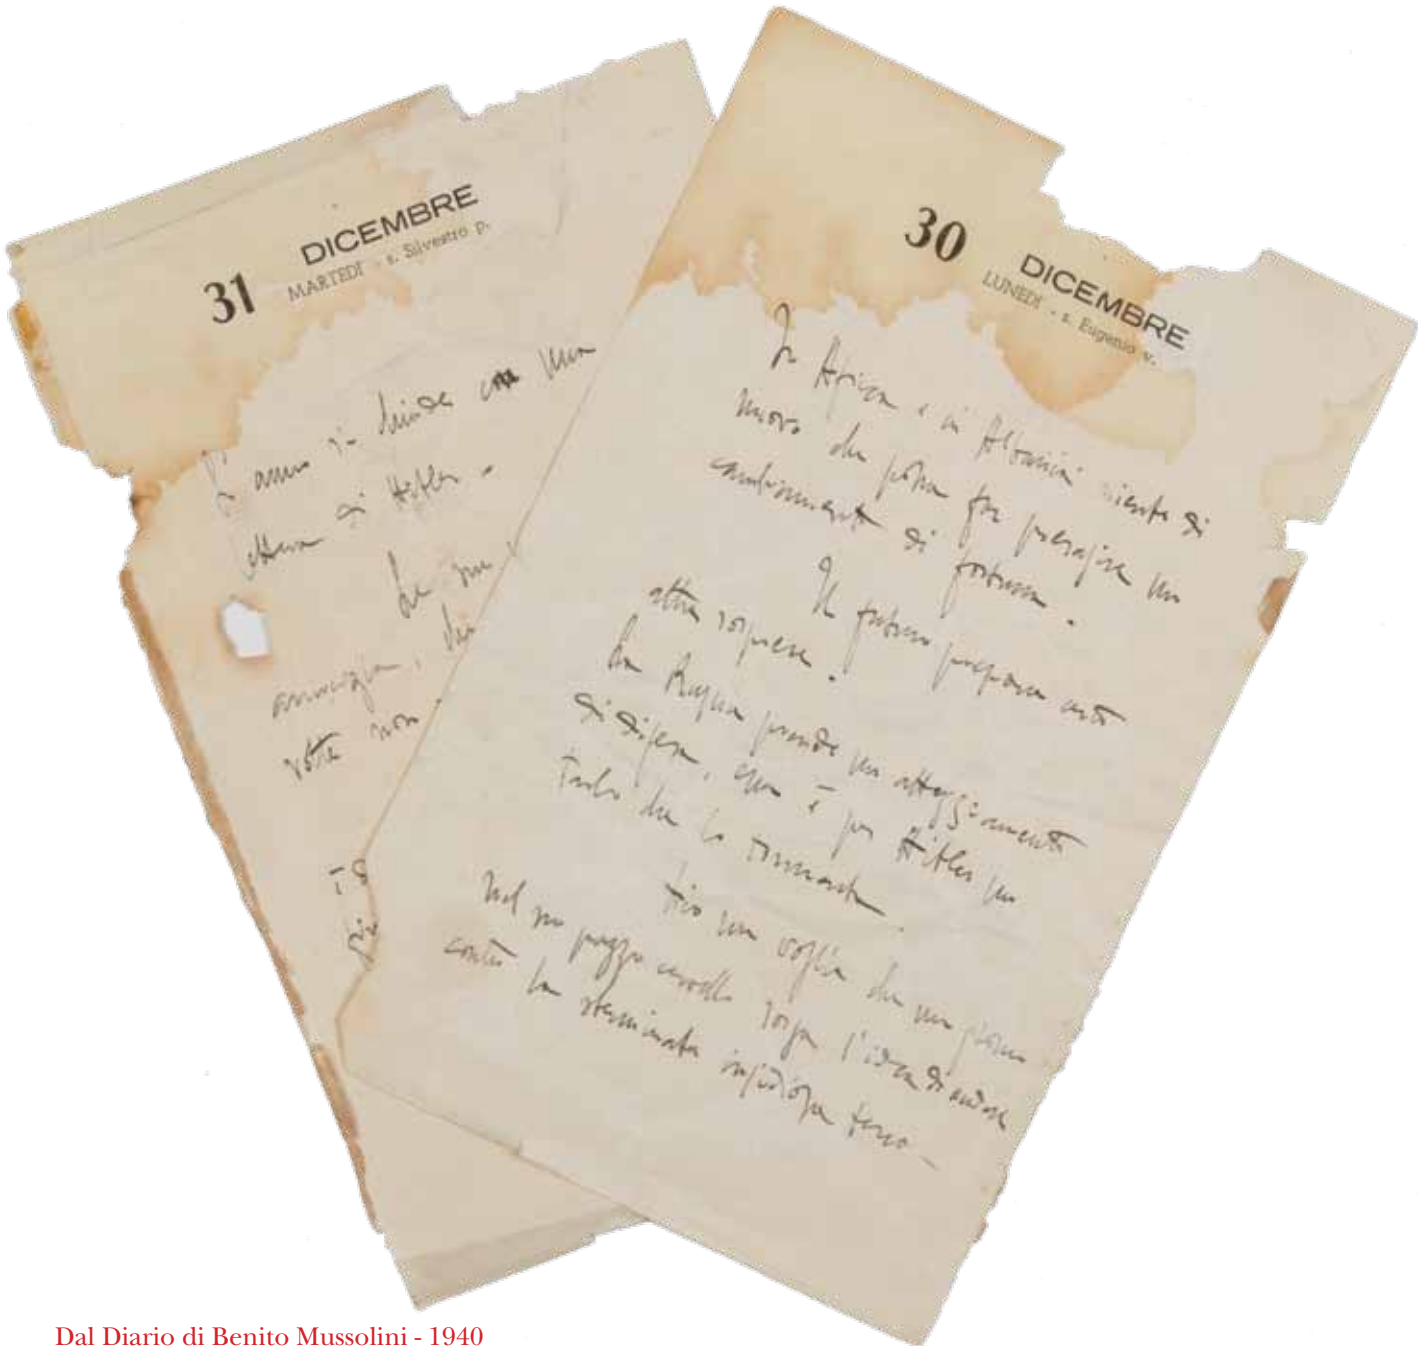 31 DICEMBRE
MARTEDÌ - s. Silvestro p.
L'anno si chiude con una
lettera di Hitler.
Le sue
volta non
30 DICEMBRE
LUNEDÌ - s. Eugenio v.
In Africa e in Albania niente di
nuovo che possa far presagire un
cambiamento di fortuna.
Il futuro prepara
altre sorprese.
La Russia prende un atteggiamento
di difesa, essa è per Hitler un
tarlo che lo tormenta.
Dio non voglia che un giorno
nel suo pazzo cervello sorga l'idea di andare
contro la sterminata insidiosa terra -
Dal Diario di Benito Mussolini - 1940